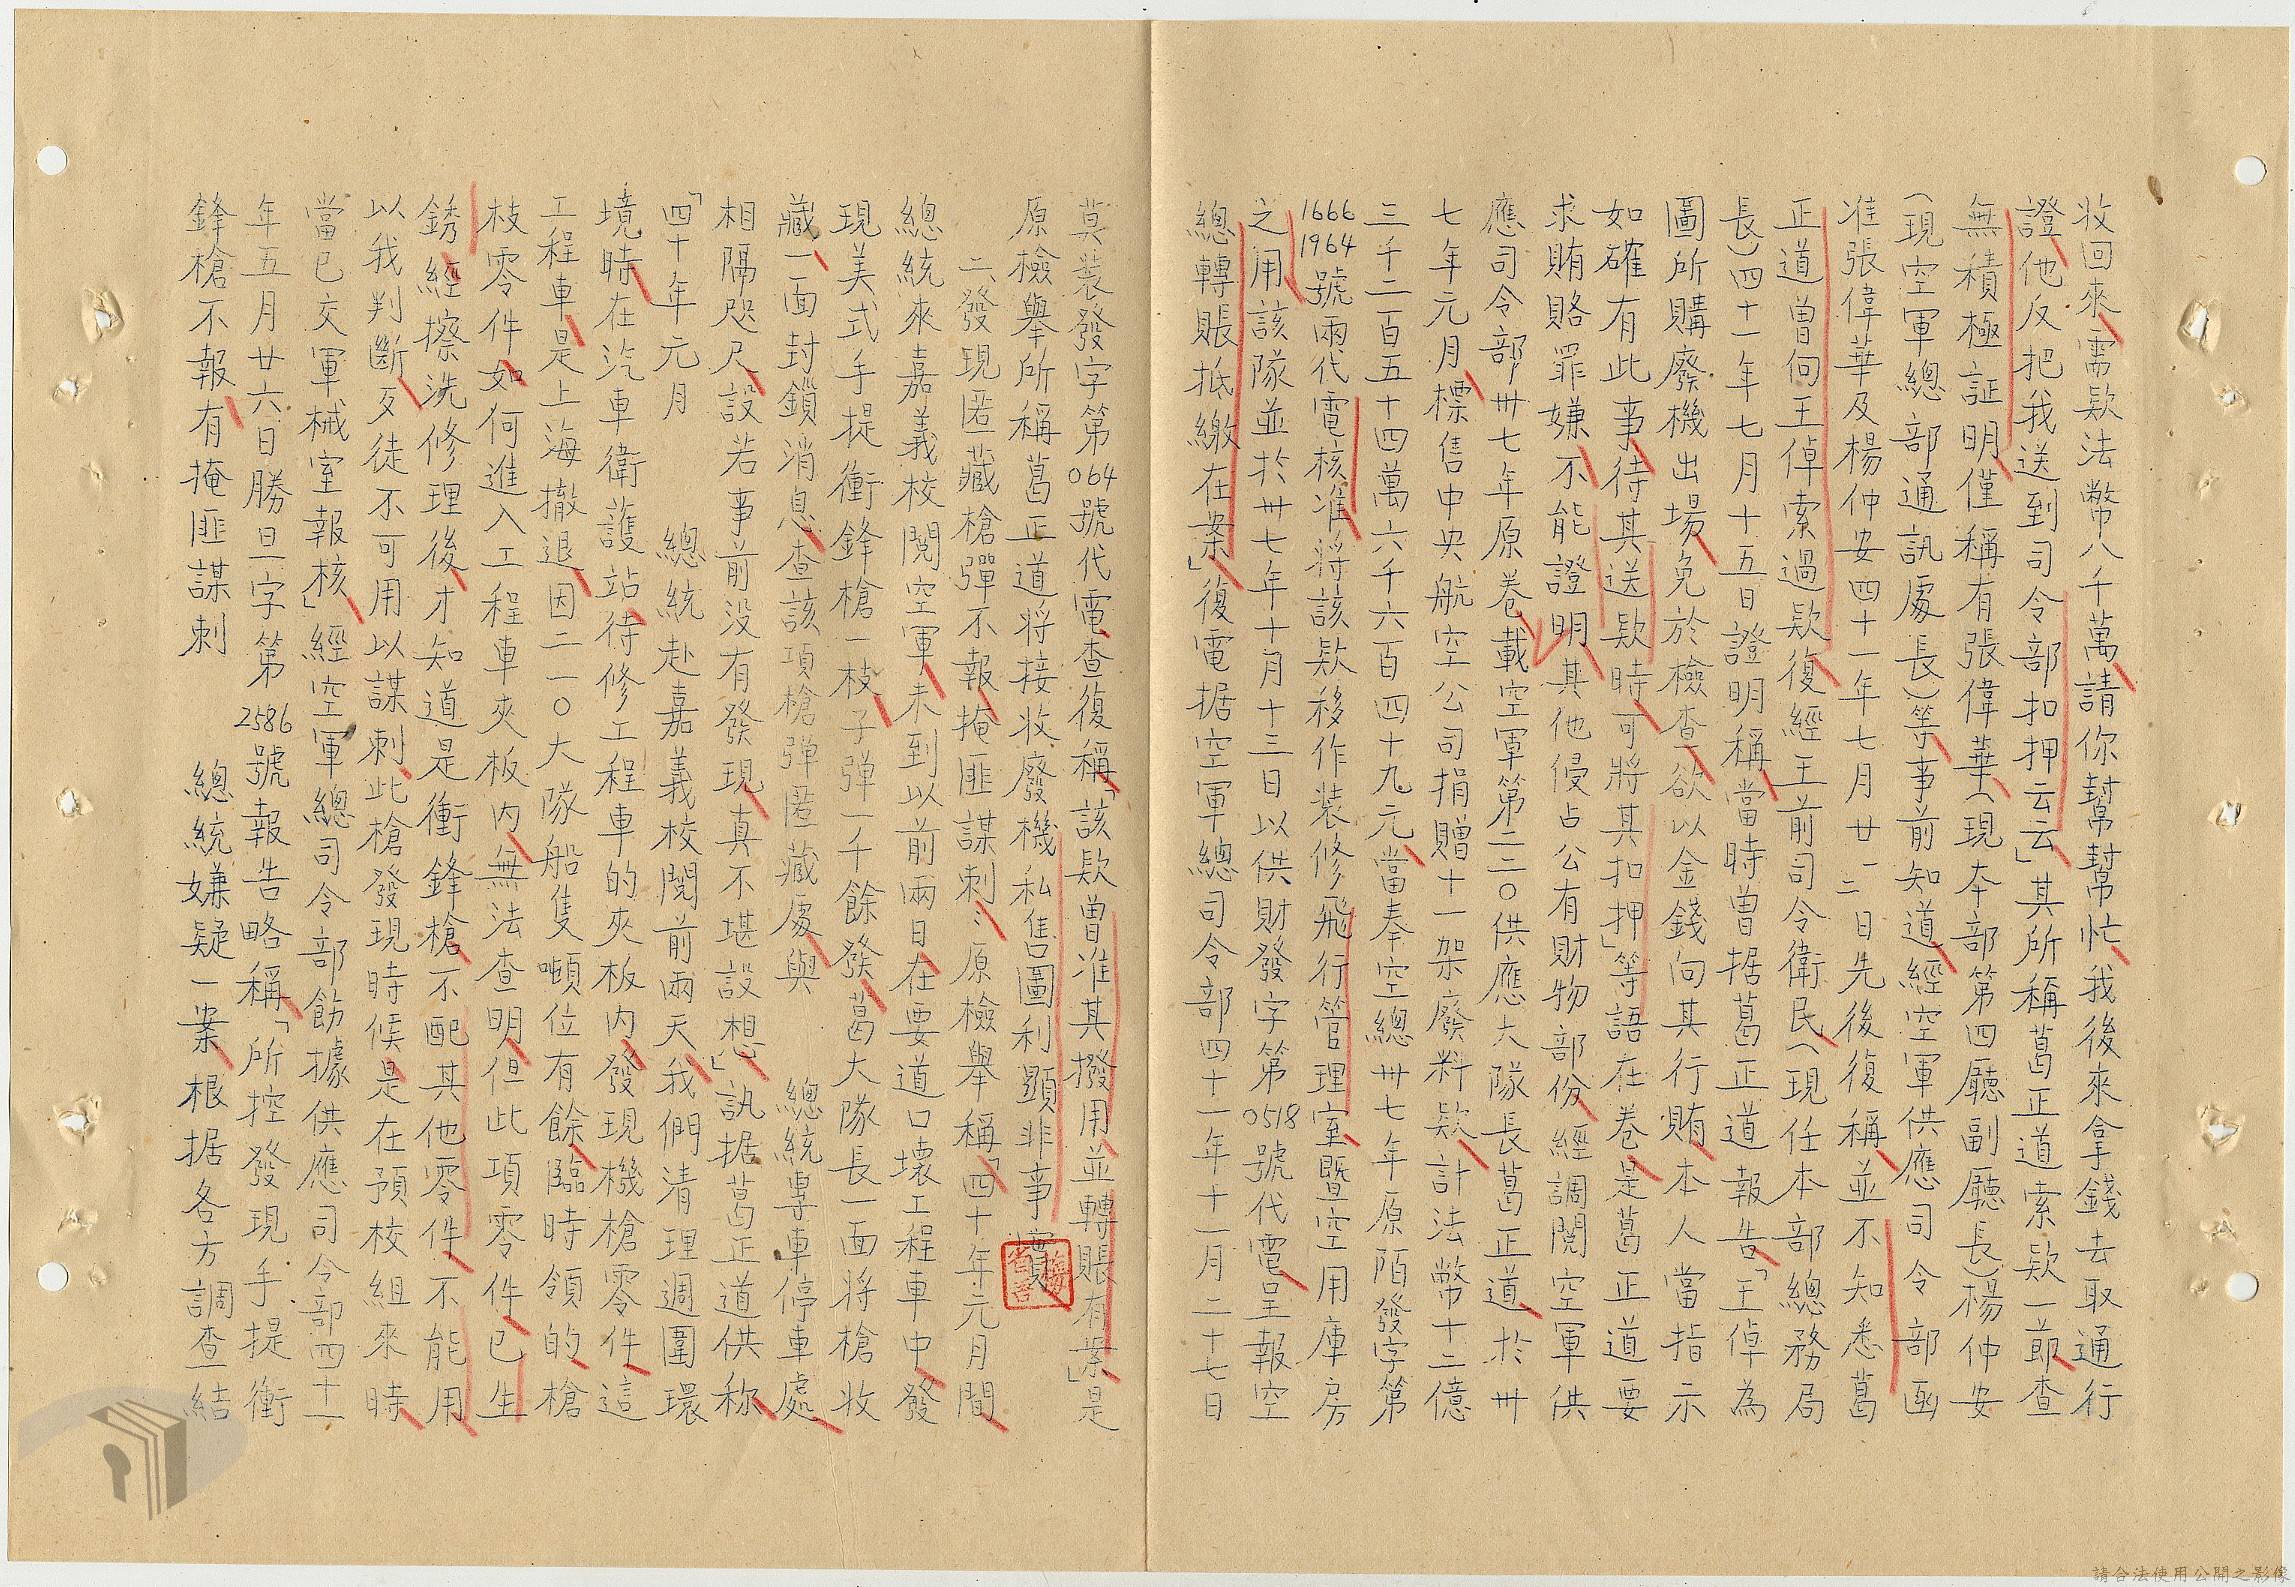 收回來需欵法幣八千萬請你幫幫忙我後來拿錢去取通行
證他反把我送到司令部扣押云云」其所稱葛正道索欵一節查
無積極証明僅稱有張偉華(現本部第四廳副廳長)楊仲安
(現空軍總部通訊處長)等事前知道經空軍供應司令部函
准張偉華及楊仲安四十一年七月廿一二日先後復稱並不知悉葛
正道曾向王倬索過欵復經王前司令衛民(現任本部總務局
長)四十一年七月十五日證明稱當時曾据葛正道報告「王倬為
圖所購廢機出場免於檢查欲以金錢向其行賄本人當指示
如確有此事待其送欵時可將其扣押」等語在卷是葛正道要
求賄賂罪嫌不能證明其他侵占公有財物部份經調閱空軍供
應司令部卅七年原卷載空軍第二二〇供應大隊長葛正道於卅
七年元月標售中央航空公司捐贈十一架廢料欵計法幣十二億
三千二百五十四萬六千六百四十九元當奉空總卅七年原陌發字第
1666
1964號兩代電核准將該欵移作裝修飛行管理室暨空用庫房
之用該隊並於卅七年十月十三日以供財發字第0518號代電呈報空
總轉賬抵繳在案」復電据空軍總司令部四十一年十一月二十七日
莫裝發字第064號代電查復稱「該欵曾准其撥用並轉賬有案」是
原檢舉所稱葛正道將接收廢機私售圖利顯非事實
二發現匿藏槍彈不報掩匪謀刺：原檢舉稱「四十年元月間
總統來嘉義校閱空軍未到以前兩日在要道口壞工程車中發
現美式手提衝鋒槍一枝子彈一千餘發葛大隊長一面將槍收
藏一面封鎖消息查該項槍彈匿藏處與 總統專車停車處
相隔咫尺設若事前没有發現真不堪設想」訊据葛正道供称
「四十年元月 總統赴嘉義校閱前兩天我們清理週圍環
境時在汽車衛護站待修工程車的夾板内發現機槍零件這
工程車是上海撤退因二一〇大隊船隻噸位有餘臨時領的槍
枝零件如何進入工程車夾板内無法查明但此項零件已生
銹經擦洗修理後才知道是衝鋒槍不配其他零件不能用
以我判斷歹徒不可用以謀刺此槍發現時候是在預校組來時
當已交軍械室報核」經空軍總司令部飭據供應司令部四十一
年五月廿六日勝旦字第2586號報告略稱「所控發現手提衝
鋒槍不報有掩匪謀刺 總統嫌疑一案根据各方調查結
請合法使用公開之影像